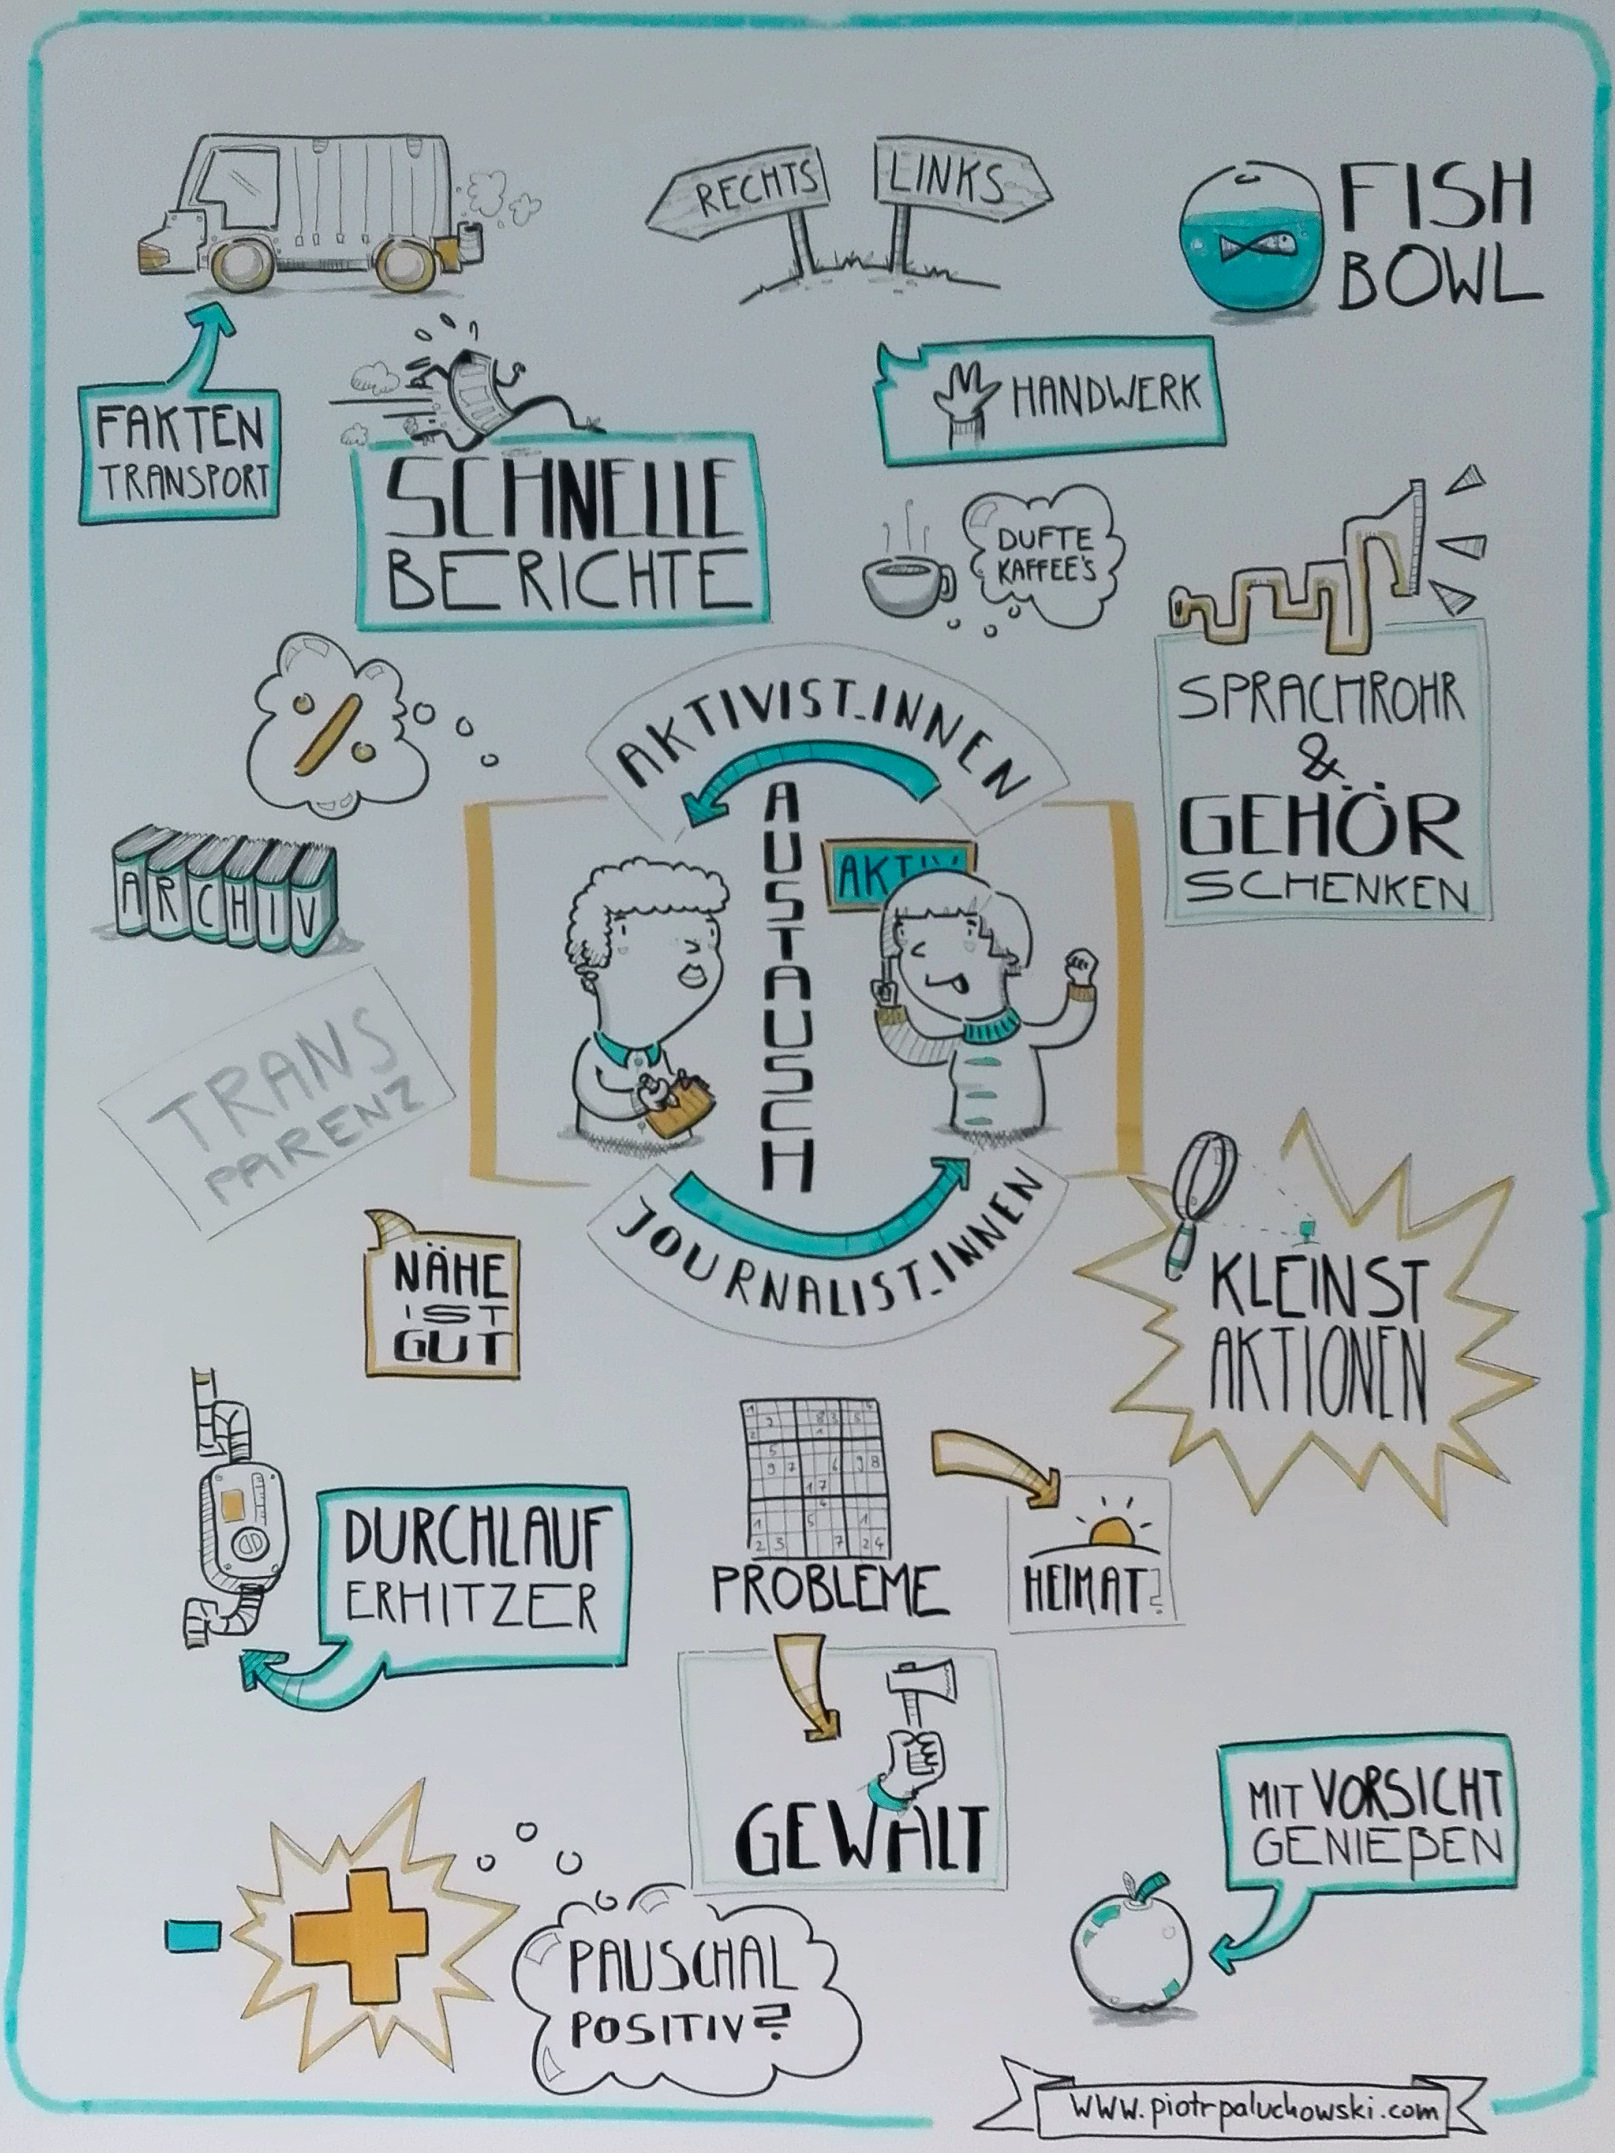 RECHTS
LINKS
FISH
BOWL
FAKTEN
TRANSPORT
SCHNELLE
BERICHTE
HANDWERK
DUFTE
KAFFEE'S
SPRACHROHR
&
GEHÖR
SCHENKEN
%
ARCHIV
TRANS
PARENZ
AKTIVIST_INNEN
AUSTAUSCH
AKTIV
JOURNALIST_INNEN
NÄHE
IST
GUT
KLEINST
AKTIONEN
DURCHLAUF
ERHITZER
PROBLEME
HEIMAT?
GEWALT
MIT VORSICHT
GENIEßEN
PAUSCHAL
POSITIV?
www.piotrpaluchowski.com